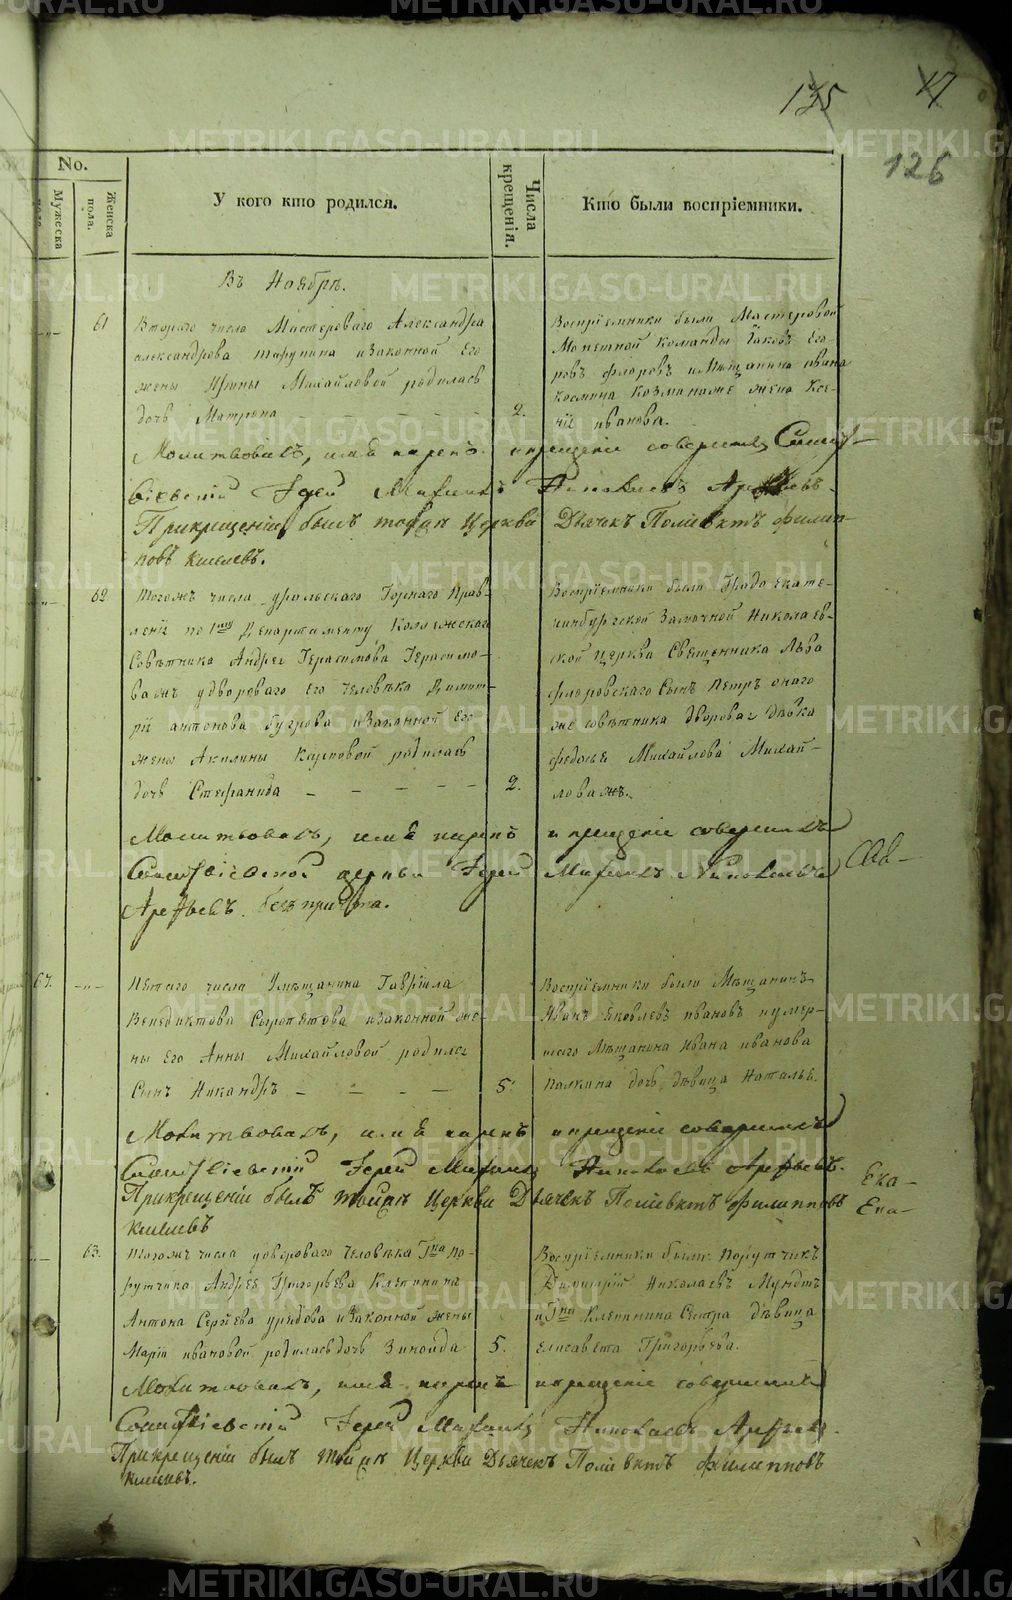 135 17
126
No.
Мужеска
Женска пола.
У кого кто родился.
Числа крещенія.
Кто были воспріемники.
Въ Ноябрѣ.
61 Втораго числа Мастероваго Александра
Александрова Тарунина изаконной Его
жены Ирины Михайловой родилась
дочь Матрона 2.
Воспріемники были Мастеровой
Монетной команды Яковъ Его-
ровъ Флоровъ и Мѣщанина Ивана
Космина Козминаже жена Ксе-
нія Иванова.
Молитвовалъ, имя нарекъ и крещеніе совершилъ
Іерей Михаилъ Николаевъ
Прикрещеніи былъ тойже Церкви Дьячекъ Поліевктъ Филип-
повъ
62 Тогожъ числа уральскаго Горнаго Прав-
ленія по 1му Департаменту Коллежскаго
Совѣтника Андрея Герасимова Герасимо-
ва жъ удвороваго Его Человѣка Димит-
рія Антонова Бугрова изаконной Его
жены Акилины Карповой родилась
дочь Стефанида 2.
Воспріемники были Градо Екате-
ринбургской Заячной Николаев-
ской церкви Священника Льва
Флоровскаго Сынъ Петръ онаго
же совѣтника дворовая дѣвка
Федосья Михайлова Михай-
лова жъ.
Молитвовалъ, имя нарекъ и крещеніе совершилъ
церкви Іерей Михаилъ Николаевъ
Арефьевъ безъ причта.
67. Пятаго числа Умѣщанина Гавріила
Венедиктова Сыропятова изаконной же-
ны Его Анны Михайловой родился
Сынъ Никандръ 5.
Воспріемники были Мѣщанинъ
Иванъ Яковлевъ Ивановъ иумер-
шаго Мѣщанина Ивана Иванова
Палкина дочь дѣвица Наталья.
Молитвовалъ, имя нарекъ и крещеніе совершилъ
Іерей Михаилъ Николаевъ Арефьевъ.
Прикрещеніи былъ тойже Церкви Дьячекъ Поліевктъ Филипповъ
63. Тогожъ числа удвороваго Человѣка Гна По-
рутчика Андрея Григорьева Клепинина
Антона Сергѣева изаконной жены
Маріи Ивановой родилась дочь Зиноида 5.
Воспріемники были Порутчикъ
Димитрій Николаевъ Мундтъ
и Гна Клепинина Сестра дѣвица
Елисавета Григорьева.
Молитвовалъ, имя нарекъ и крещеніе совершилъ
Іерей Михаилъ Николаевъ Арефьевъ.
Прикрещеніи былъ тойже Церкви Дьячекъ Поліевктъ Филипповъ
METRIKI.GASO-URAL.RU